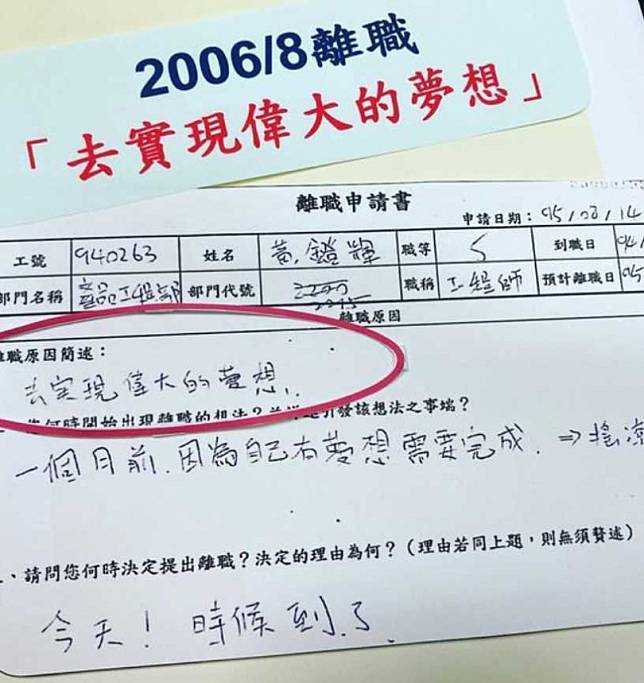 2006/8離職
「去實現偉大的夢想」
離職申請書
申請日期：95/08/14
工號 940263 姓名 黃鐙輝 職等 5 到職日 94/
部門名稱 產品工程部 部門代號 職稱 工程師 預計離職日 95
離職原因
離職原因簡述：
去实現偉大的夢想.
您何時開始出現離職的想法？並 引發該想法之事端？
一個月前.因為自己有夢想需要完成.⇒搖滾
、請問您何時決定提出離職？決定的理由為何？（理由若同上題，則無須贅述）
今天！時候到了